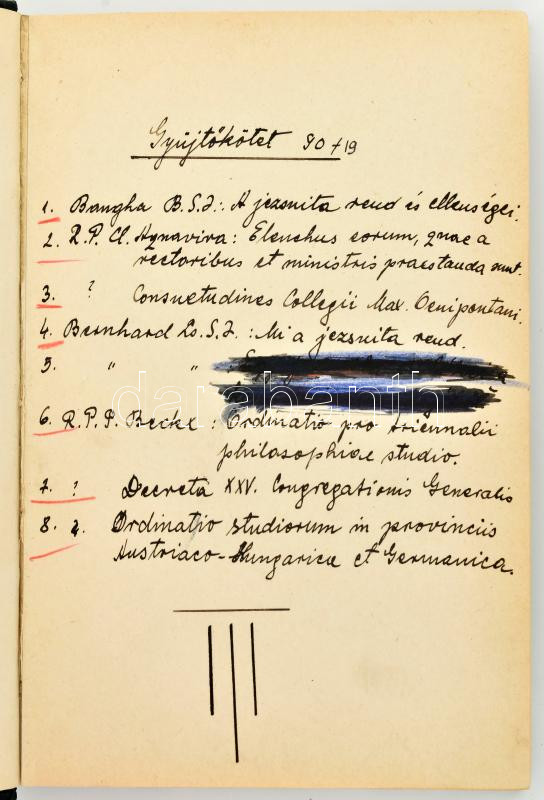 Gyüjtőkötet 80 + 19
1. Bangha B. S.J.: A jezsuita rend és ellenségei.
2. R.P. Cl. Aqnavira: Elenchus eorum, quae a
rectoribus et ministris praestanda sunt.
3. ? Consuetudines Collegii Max. Oenipontani.
4. Bernhard Lo. S.J.: Mi a jezsuita rend.
5. " "
6. R.P.P. Beckx: Ordinatio pro triennalii
philosophiae studio.
7. ? Decreta XXV. Congregationis Generalis
8. ? Ordinatio studiorum in provinciis
Austriaco-Hungarica et Germanica.
darabanth